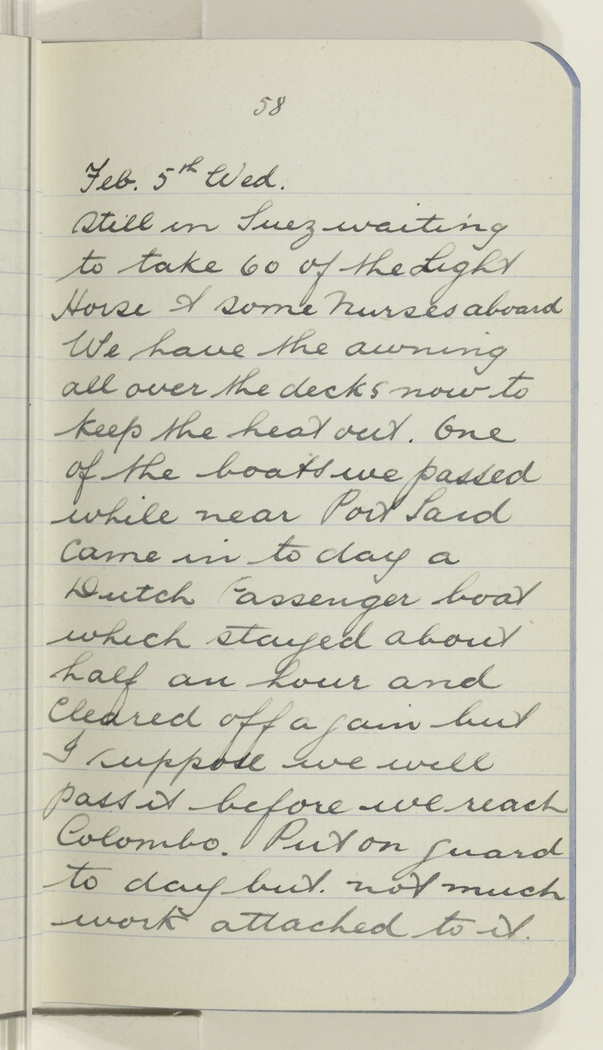 58
Feb. 5th Wed.
Still in Suez waiting
to take 60 of the Light
Horse & some Nurses aboard
We have the awning
all over the decks now to
keep the heat out. One
of the boats we passed
while near Port Said
came in to day a
Dutch Passenger boat
which stayed about
half an hour and
cleared off again but
I suppose we will
pass it before we reach
Colombo. Put on guard
to day but not much
work attached to it.